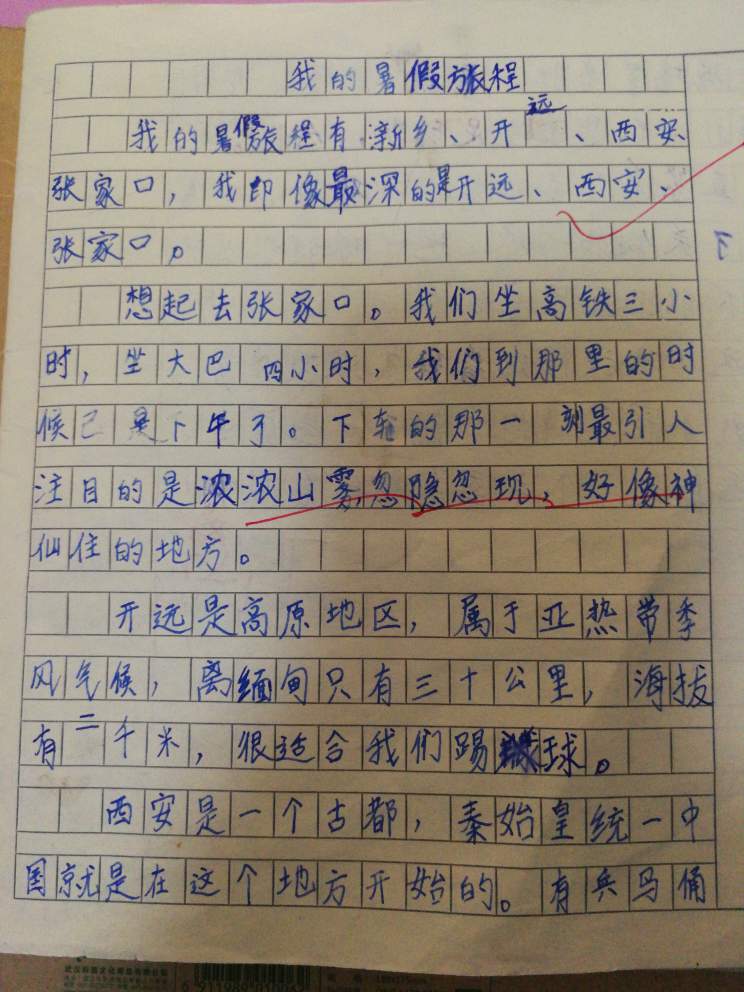 我的暑假旅程
我的暑假旅程有新乡、开远、西安
张家口，我即像最深的是开远、西安、
张家口。
想起去张家口。我们坐高铁三小
时，坐大巴四小时，我们到那里的时
候已是下午了。下车的那一刻最引人
注目的是浓浓山雾，忽隐忽现，好像神
仙住的地方。
开远是高原地区，属于亚热带季
风气候，离缅甸只有三十公里，海拔
有二千米，很适合我们踢球。
西安是一个古都，秦始皇统一中
国就是在这个地方开始的。有兵马俑